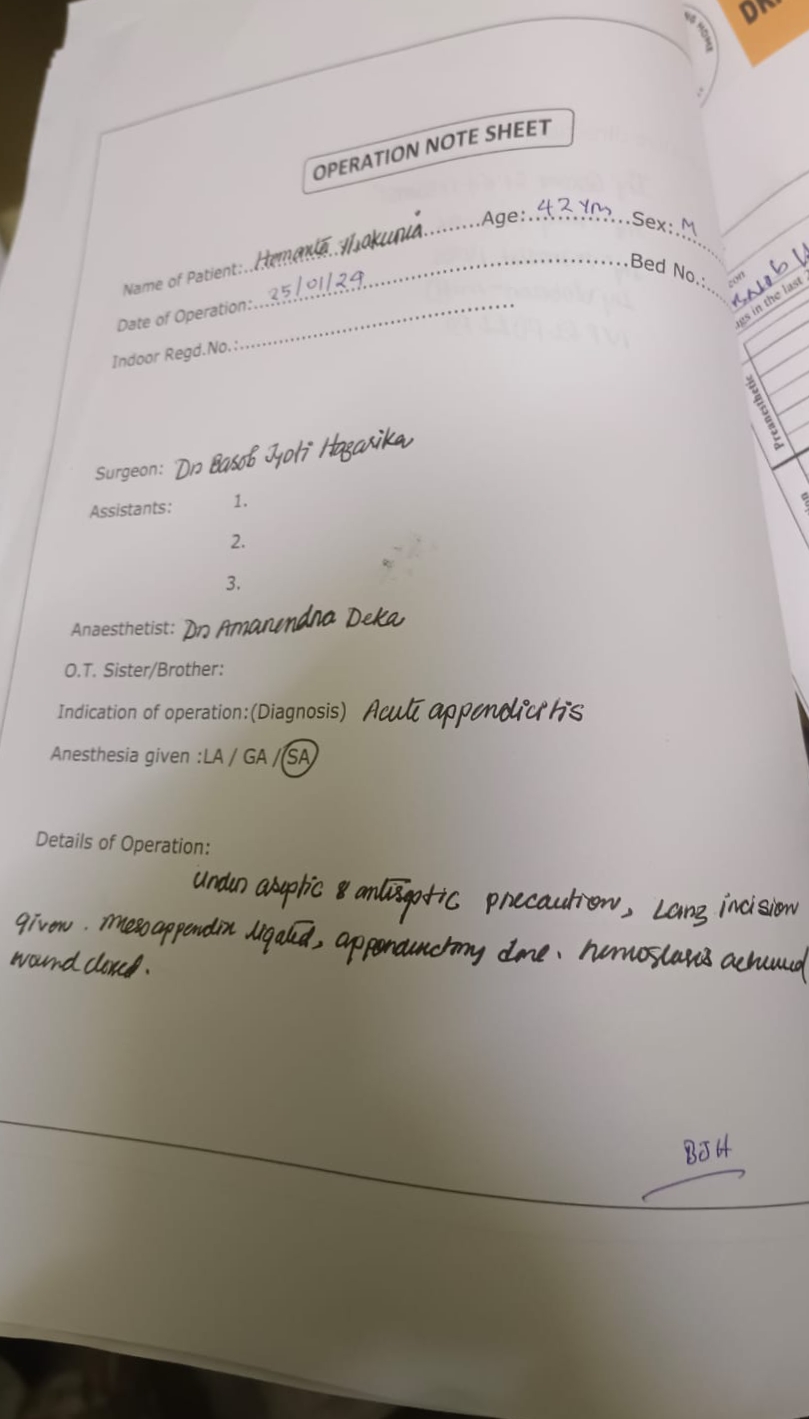 OPERATION NOTE SHEET
Name of Patient:..Hemanta.......Age:..42 Yrs...Sex:..M
Date of Operation:...25/01/24.......Bed No.:...
Indoor Regd.No.:.......
Surgeon: Dr Basob Jyoti Hazarika
Assistants: 1.
2.
3.
Anaesthetist: Dr Amarendra Deka
O.T. Sister/Brother:
Indication of operation:(Diagnosis) Acute appendicitis
Anesthesia given :LA / GA / SA
Details of Operation:
Under aseptic & antiseptic precaution, Lanz incision
given. mesoappendix ligated, appendectomy done. hemostasis achieved
wound closed.
BJH
DR
gs in the last
Preanesthetic